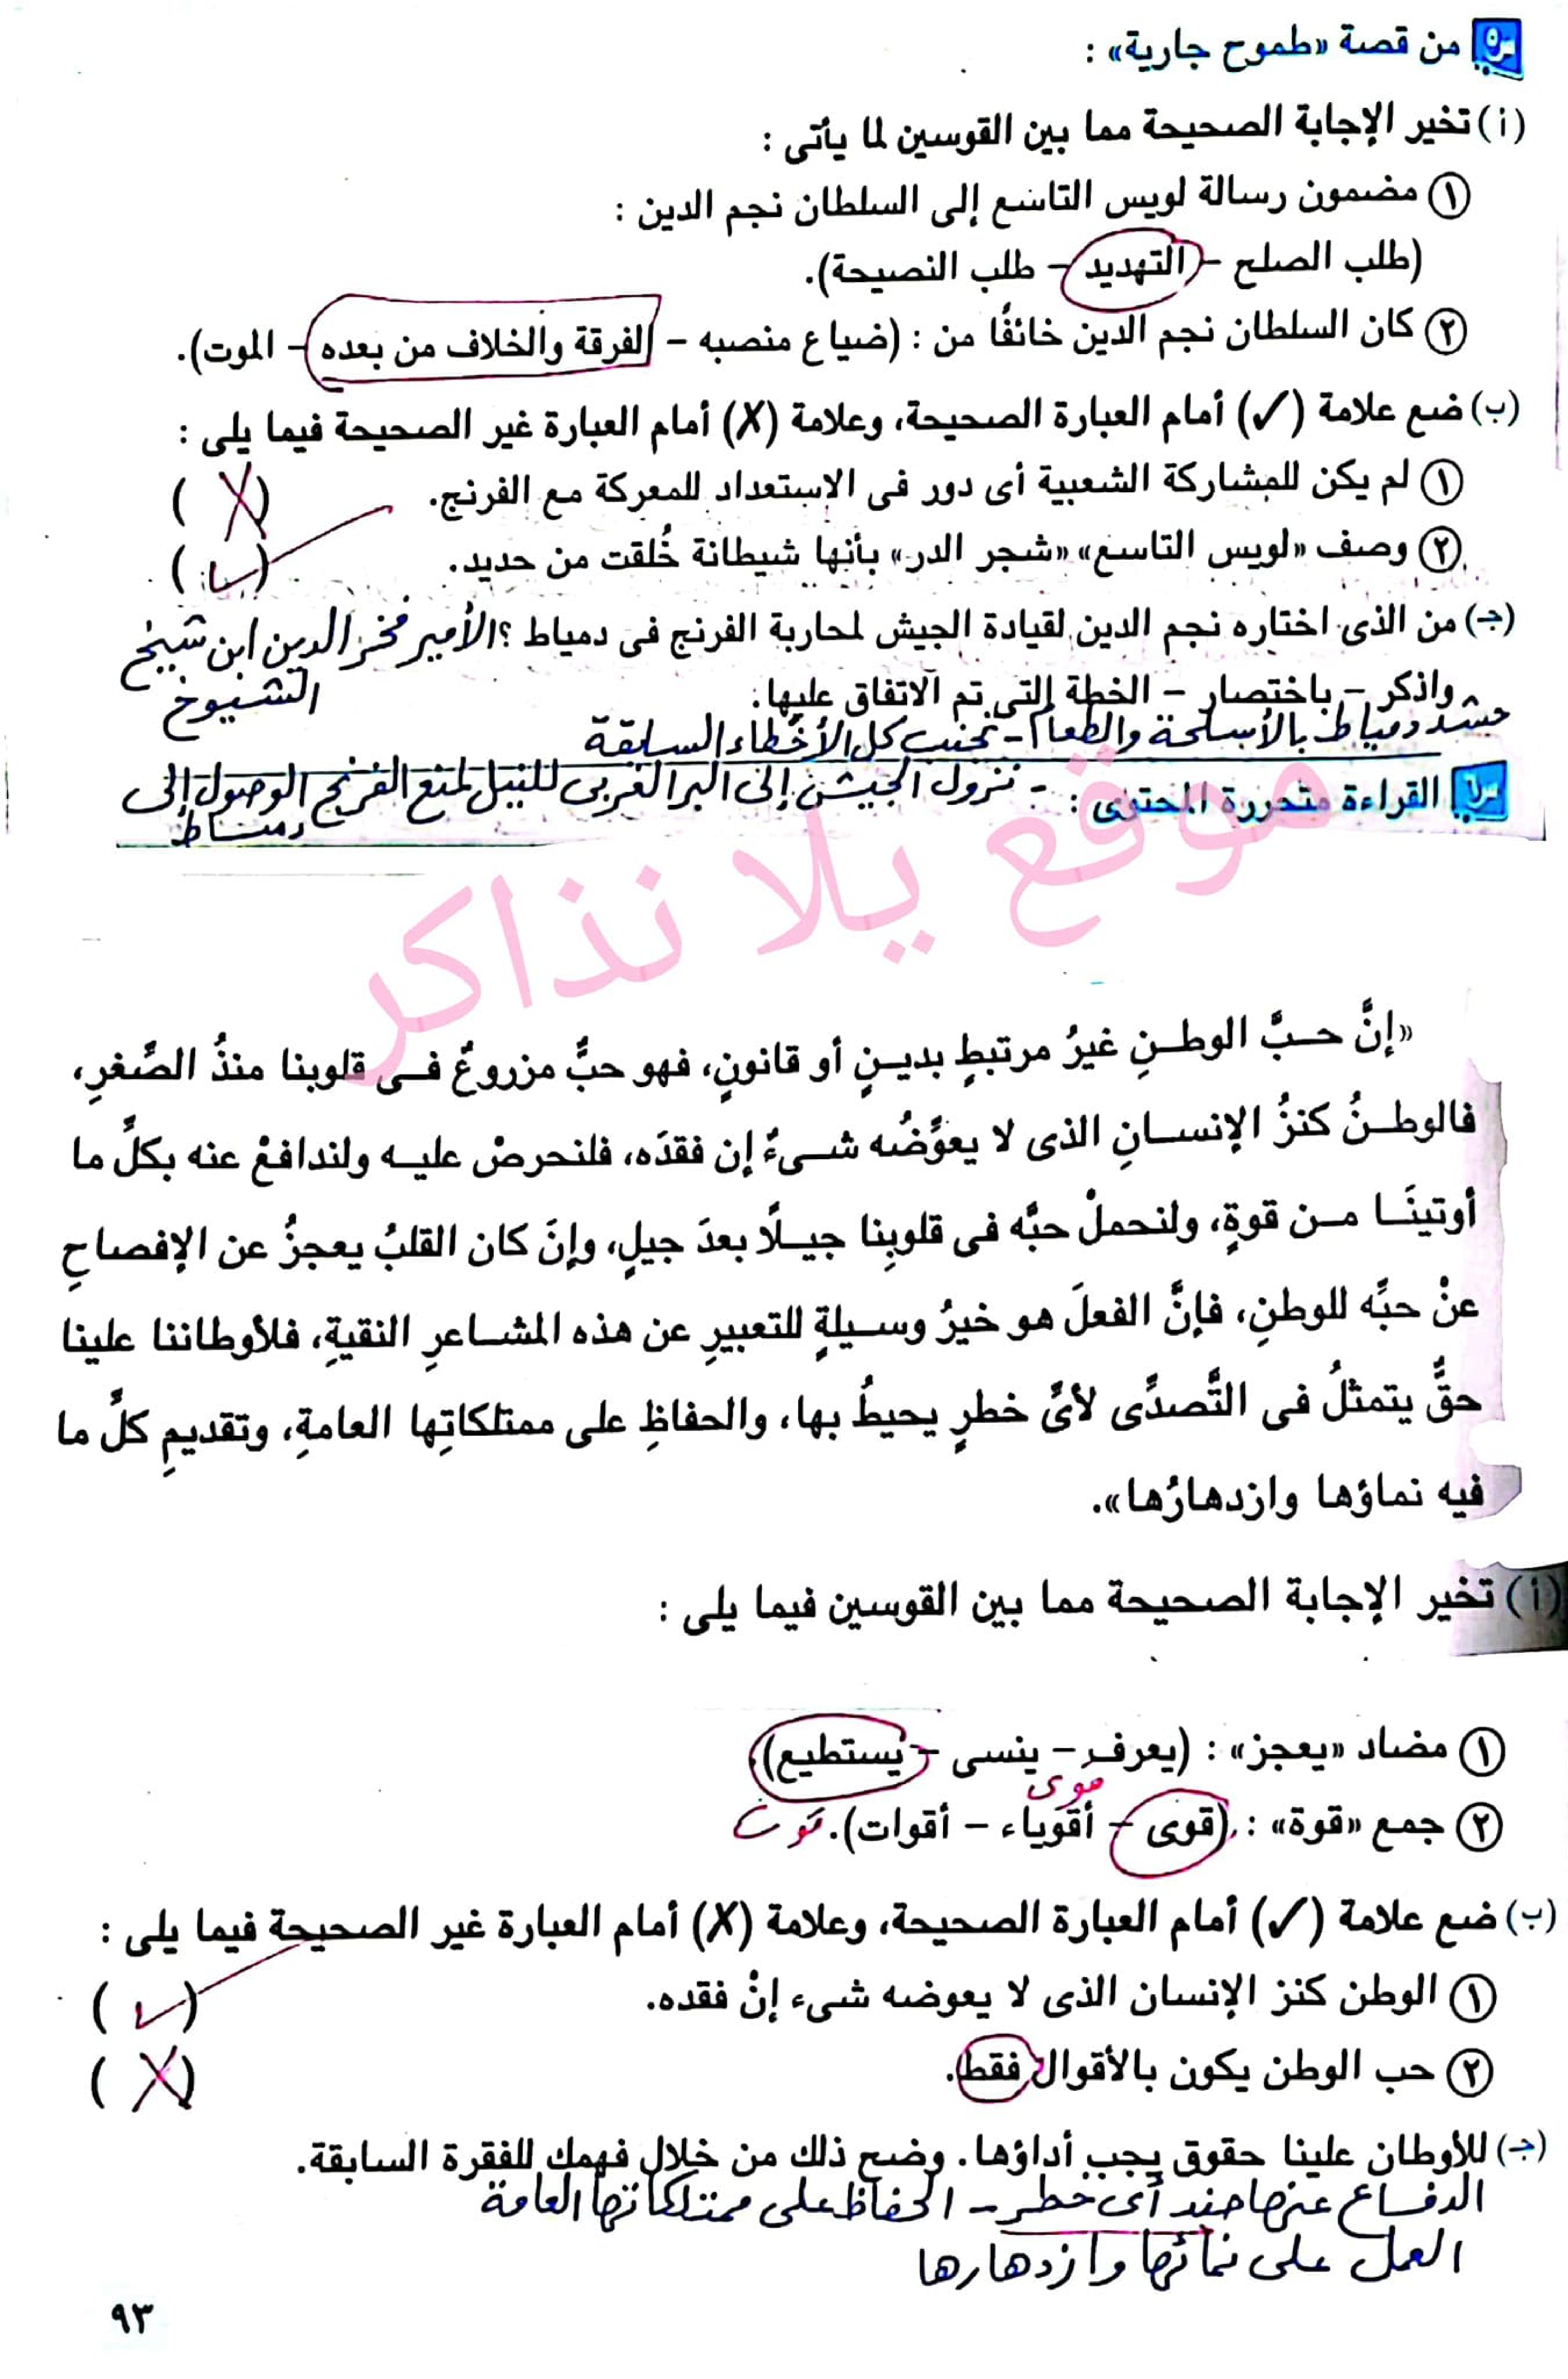 س٥ من قصة «طموح جارية» :
(أ) تخير الإجابة الصحيحة مما بين القوسين لما يأتى :
١ مضمون رسالة لويس التاسع إلى السلطان نجم الدين :
(طلب الصلح - التهديد - طلب النصيحة).
٢ كان السلطان نجم الدين خائفًا من : (ضياع منصبه - الفرقة والخلاف من بعده - الموت).
(ب) ضع علامة (✓) أمام العبارة الصحيحة، وعلامة (X) أمام العبارة غير الصحيحة فيما يلى :
١ لم يكن للمشاركة الشعبية أى دور فى الاستعداد للمعركة مع الفرنج. ( X )
٢ وصف «لويس التاسع» «شجر الدر» بأنها شيطانة خُلقت من حديد. ( ✓ )
(جـ) من الذى اختاره نجم الدين لقيادة الجيش لمحاربة الفرنج فى دمياط ؟ الأمير فخر الدين ابن شيخ
الشيوخ
واذكر - باختصار - الخطة التى تم الاتفاق عليها.
حشد دمياط بالأسلحة والطعام - تجنب كل الأخطاء السابقة
س٦ القراءة متحررة المحتوى : - نزول الجيش إلى البر الغربى للنيل لمنع الفرنج الوصول إلى
دمياط
موقع يلا نذاكر
«إنَّ حبَّ الوطنِ غيرُ مرتبطٍ بدينٍ أو قانونٍ، فهو حبٌّ مزروعٌ فى قلوبنا منذُ الصِّغرِ،
فالوطنُ كنزُ الإنسانِ الذى لا يعوِّضُه شىءٌ إن فقدَه، فلنحرصْ عليه ولندافعْ عنه بكلِّ ما
أوتينَا من قوةٍ، ولنحملْ حبَّه فى قلوبِنا جيلًا بعدَ جيلٍ، وإنَ كان القلبُ يعجزُ عن الإفصاحِ
عنْ حبِّه للوطنِ، فإنَّ الفعلَ هو خيرُ وسيلةٍ للتعبيرِ عن هذه المشاعرِ النقيةِ، فلأوطاننا علينا
حقٌّ يتمثلُ فى التَّصدِّى لأىِّ خطرٍ يحيطُ بها، والحفاظِ على ممتلكاتِها العامةِ، وتقديمِ كلِّ ما
فيه نماؤها وازدهارُها».
(أ) تخير الإجابة الصحيحة مما بين القوسين فيما يلى :
١ مضاد «يعجز» : (يعرف - ينسى - يستطيع).
قوى
٢ جمع «قوة» : (قوى - أقوياء - أقوات). قوت
(ب) ضع علامة (✓) أمام العبارة الصحيحة، وعلامة (X) أمام العبارة غير الصحيحة فيما يلى :
١ الوطن كنز الإنسان الذى لا يعوضه شىء إنْ فقده. ( ✓ )
٢ حب الوطن يكون بالأقوال فقط. ( X )
(جـ) للأوطان علينا حقوق يجب أداؤها. وضح ذلك من خلال فهمك للفقرة السابقة.
الدفاع عنها ضد أى خطر - الحفاظ على ممتلكاتها العامة
العمل على نمائها وازدهارها
٩٣